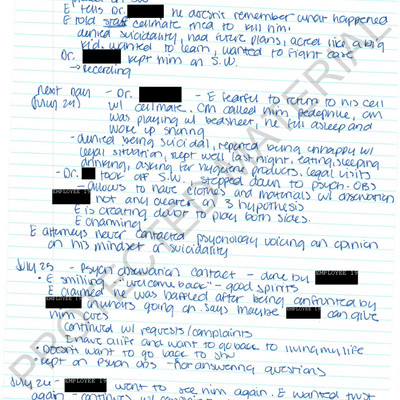 E tells Dr. he doesn't remember what happened
E told staff cellmate tried to kill him.
denied suicidality, had future plans, acted like a big
kid. wanted to learn, wanted to fight case
Dr. kept him on S.W.
→ recording
next day - Dr. - E fearful to return to his cell
(July 24) w/ cellmate. CM called him pedophile, CM
was playing w/ bedsheet, he fell asleep and
woke up snoring
- denied being suicidal, reported being unhappy w/
legal situation, slept well last night. eating, sleeping
drinking, asking for hygiene products. legal visits
- Dr. took off S.W. stepped down to psych. OBS
- allows to have clothes and materials w/ observation
not any clearer - 3 hypothesis
E is creating door to play both sides.
E charming
E attorneys never contacted psychology voicing an opinion
on his mindset or suicidality
July 25 - Psych observation contact - done by EMPLOYEE 19
• E smiling - "welcome back" - good spirits
• E claimed he was baffled after being confronted by
rumours going on. Says maybe can give
him cuts
continued w/ requests/complaints
• I have a life and want to go back to living my life
• Doesn't want to go back to SHU
• Kept on Psych OBS - not answering questions
July 26 - EMPLOYEE 19 went to see him again. E wanted trust
again - continues w/
PROTECTED MATERIAL